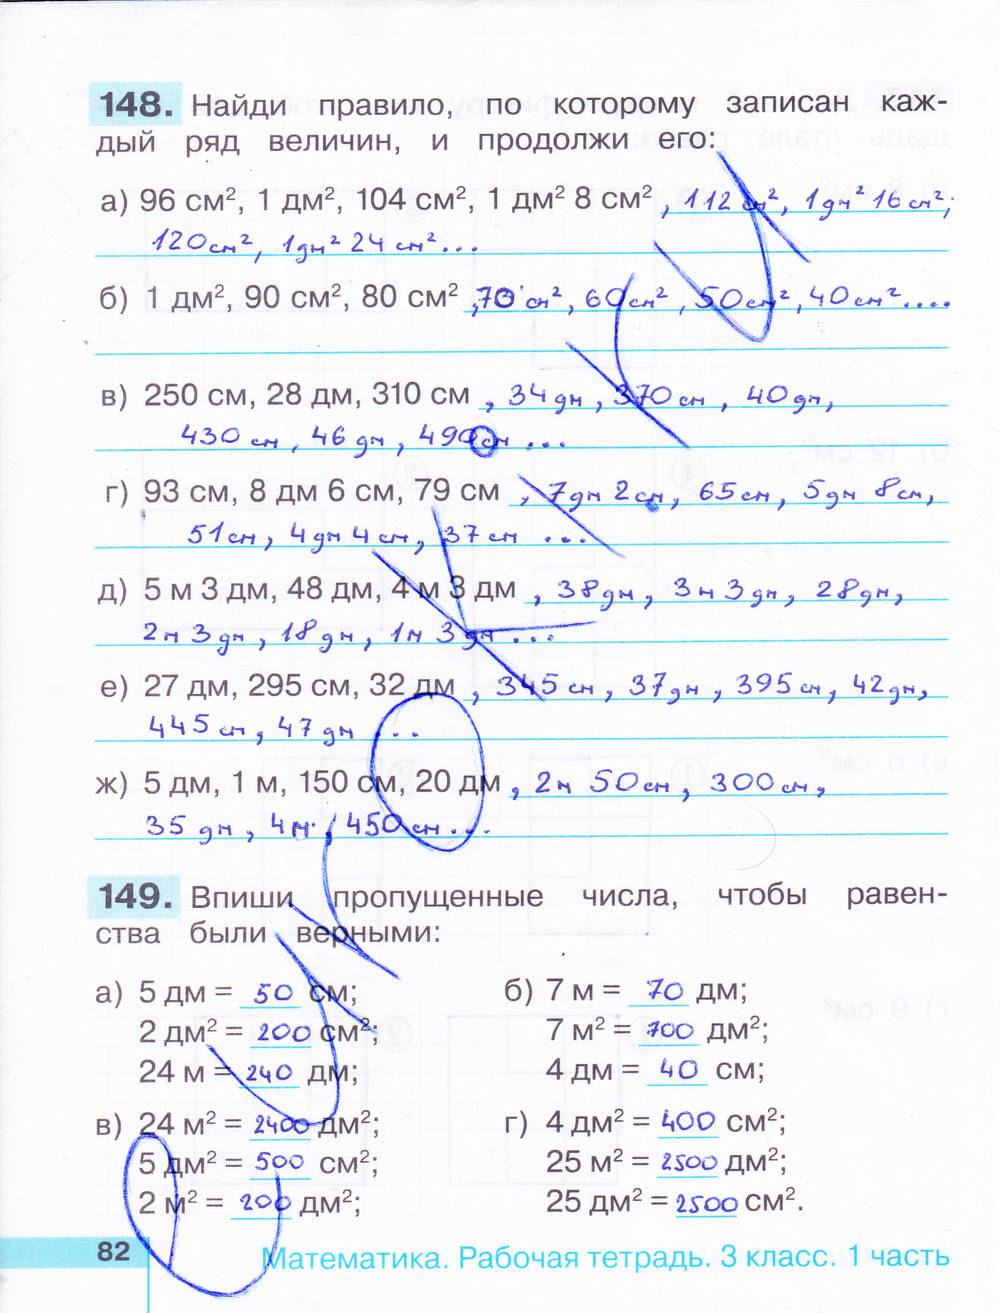 148. Найди правило, по которому записан каж-
дый ряд величин, и продолжи его:
а) 96 см², 1 дм², 104 см², 1 дм² 8 см², 112 см², 1 дм² 16 см²;
120 см², 1 дм² 24 см²...
б) 1 дм², 90 см², 80 см², 70 см², 60 см², 50 см², 40 см²....
в) 250 см, 28 дм, 310 см, 34 дм, 370 см, 40 дм,
430 см, 46 дм, 490 см ...
г) 93 см, 8 дм 6 см, 79 см, 7 дм 2 см, 65 см, 5 дм 8 см,
51 см, 4 дм 4 см, 37 см ...
д) 5 м 3 дм, 48 дм, 4 м 3 дм, 38 дм, 3 м 3 дм, 28 дм,
2 м 3 дм, 18 дм, 1 м 3 дм ...
е) 27 дм, 295 см, 32 дм, 345 см, 37 дм, 395 см, 42 дм,
445 см, 47 дм ...
ж) 5 дм, 1 м, 150 см, 20 дм, 2 м 50 см, 300 см,
35 дм, 4 м, 450 см ...
149. Впиши пропущенные числа, чтобы равен-
ства были верными:
а) 5 дм = 50 см;
2 дм² = 200 см²;
24 м = 240 дм;
б) 7 м = 70 дм;
7 м² = 700 дм²;
4 дм = 40 см;
в) 24 м² = 2400 дм²;
5 дм² = 500 см²;
2 м² = 200 дм²;
г) 4 дм² = 400 см²;
25 м² = 2500 дм²;
25 дм² = 2500 см².
82 Математика. Рабочая тетрадь. 3 класс. 1 часть